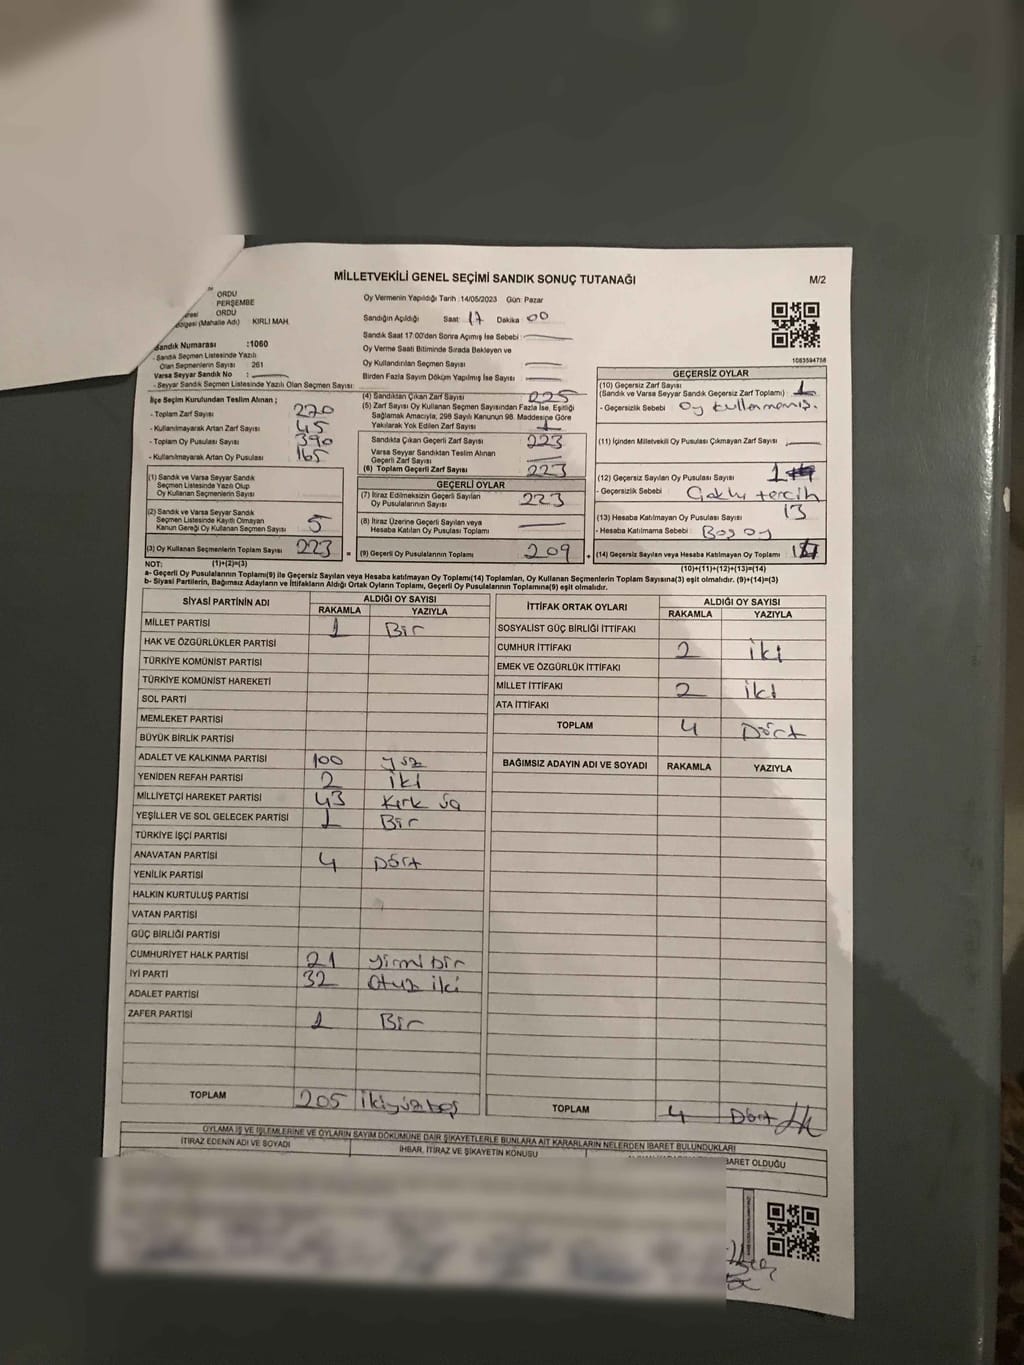 MİLLETVEKİLİ GENEL SEÇİMİ SANDIK SONUÇ TUTANAĞI
M/2
ORDU
PERŞEMBE
ORDU
(Mahalle Adı) KIRLI MAH.
Sandık Numarası :1060
- Sandık Seçmen Listesinde Yazılı
Olan Seçmenlerin Sayısı : 261
Varsa Seyyar Sandık No :
- Seyyar Sandık Seçmen Listesinde Yazılı Olan Seçmen Sayısı:
Oy Vermenin Yapıldığı Tarih :14/05/2023 Gün: Pazar
Sandığın Açıldığı Saat 17 Dakika 00
Sandık Saat 17:00'den Sonra Açımış İse Sebebi :
Oy Verme Saati Bitiminde Sırada Bekleyen ve
Oy Kullandırılan Seçmen Sayısı :
Birden Fazla Sayım Döküm Yapılmış İse Sayısı :
1063594758
İlçe Seçim Kurulundan Teslim Alınan ;
- Toplam Zarf Sayısı 270
- Kullanılmayarak Artan Zarf Sayısı 45
- Toplam Oy Pusulası Sayısı 390
- Kullanılmayarak Artan Oy Pusulası 165
(1) Sandık ve Varsa Seyyar Sandık
Seçmen Listesinde Yazılı Olup
Oy Kullanan Seçmenlerin Sayısı
(2) Sandık ve Varsa Seyyar Sandık
Seçmen Listesinde Kayıtlı Olmayan
Kanun Gereği Oy Kullanan Seçmen Sayısı 5
(3) Oy Kullanan Seçmenlerin Toplam Sayısı 223 =
(4) Sandıktan Çıkan Zarf Sayısı 225
(5) Zarf Sayısı Oy Kullanan Seçmen Sayısından Fazla İse, Eşitliği
Sağlamak Amacıyla, 298 Sayılı Kanunun 98. Maddesine Göre
Yakılarak Yok Edilen Zarf Sayısı 1
Sandıkta Çıkan Geçerli Zarf Sayısı 223
Varsa Seyyar Sandıktan Teslim Alınan
Geçerli Zarf Sayısı
(6) Toplam Geçerli Zarf Sayısı 223
GEÇERLİ OYLAR
(7) İtiraz Edilmeksizin Geçerli Sayılan
Oy Pusulalarının Sayısı 223
(8) İtiraz Üzerine Geçerli Sayılan veya
Hesaba Katılan Oy Pusulası Toplamı
(9) Geçerli Oy Pusulalarının Toplamı 209 +
GEÇERSİZ OYLAR
(10) Geçersiz Zarf Sayısı
(Sandık ve Varsa Seyyar Sandık Geçersiz Zarf Toplamı) 1
- Geçersizlik Sebebi Oy kullanmamış.
(11) İçinden Milletvekili Oy Pusulası Çıkmayan Zarf Sayısı
(12) Geçersiz Sayılan Oy Pusulası Sayısı 1
- Geçersizlik Sebebi : Çoklu tercih
(13) Hesaba Katılmayan Oy Pusulası Sayısı 13
- Hesaba Katılmama Sebebi : Boş oy
(14) Geçersiz Sayılan veya Hesaba Katılmayan Oy Toplamı
NOT: (1)+(2)=(3)
(10)+(11)+(12)+(13)=(14)
a- Geçerli Oy Pusulalarının Toplamı(9) ile Geçersiz Sayılan veya Hesaba katılmayan Oy Toplamı(14) Toplamları, Oy Kullanan Seçmenlerin Toplam Sayısına(3) eşit olmalıdır. (9)+(14)=(3)
b- Siyasi Partilerin, Bağımsız Adayların ve İttifakların Aldığı Ortak Oyların Toplamı, Geçerli Oy Pusulalarının Toplamına(9) eşit olmalıdır.
SİYASİ PARTİNİN ADI ALDIĞI OY SAYISI
RAKAMLA YAZIYLA
MİLLET PARTİSİ 1 Bir
HAK VE ÖZGÜRLÜKLER PARTİSİ
TÜRKİYE KOMÜNİST PARTİSİ
TÜRKİYE KOMÜNİST HAREKETİ
SOL PARTİ
MEMLEKET PARTİSİ
BÜYÜK BİRLİK PARTİSİ
ADALET VE KALKINMA PARTİSİ 100 yüz
YENİDEN REFAH PARTİSİ 2 iki
MİLLİYETÇİ HAREKET PARTİSİ 43 Kırk üç
YEŞİLLER VE SOL GELECEK PARTİSİ 1 Bir
TÜRKİYE İŞÇİ PARTİSİ
ANAVATAN PARTİSİ 4 Dört
YENİLİK PARTİSİ
HALKIN KURTULUŞ PARTİSİ
VATAN PARTİSİ
GÜÇ BİRLİĞİ PARTİSİ
CUMHURİYET HALK PARTİSİ 21 yirmi bir
İYİ PARTİ 32 otuz iki
ADALET PARTİSİ
ZAFER PARTİSİ 1 Bir
TOPLAM 205 ikiyüz beş
İTTİFAK ORTAK OYLARI ALDIĞI OY SAYISI
RAKAMLA YAZIYLA
SOSYALİST GÜÇ BİRLİĞİ İTTİFAKI
CUMHUR İTTİFAKI 2 iki
EMEK VE ÖZGÜRLÜK İTTİFAKI
MİLLET İTTİFAKI 2 iki
ATA İTTİFAKI
TOPLAM 4 Dört
BAĞIMSIZ ADAYIN ADI VE SOYADI RAKAMLA YAZIYLA
TOPLAM 4 Dört
OYLAMA İŞ VE İŞLEMLERİNE VE OYLARIN SAYIM DÖKÜMÜNE DAİR ŞİKAYETLERLE BUNLARA AİT KARARLARIN NELERDEN İBARET BULUNDUKLARI
İTİRAZ EDENİN ADI VE SOYADI İHBAR, İTİRAZ VE ŞİKAYETİN KONUSU BARET OLDUĞU